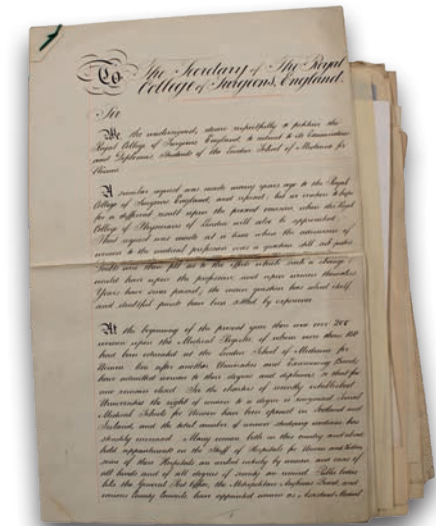 To The Secretary of The Royal
College of Surgeons, England.
Sir
We, the undersigned, desire respectfully to petition the
Royal College of Surgeons England to admit to its Examinations
and Diplomas, Students of the London School of Medicine for
Women.
A similar appeal was made many years ago to the Royal
College of Surgeons England, and refused; but we venture to hope
for a different result upon the present occasion when the Royal
College of Physicians of London will also be approached.
That appeal was made at a time when the admission of
women to the medical profession was a question still sub judice.
Doubts were then felt as to the effects which such a change
would have upon the profession and upon women themselves.
Years have since passed; the main question has solved itself
and doubtful points have been settled by experience.
At the beginning of the present year there were over 200
women upon the Medical Register of whom more than 160
had been educated at the London School of Medicine for
Women. One after another Universities and Examining Boards
have admitted women to their degrees and diplomas, so that few
now remain closed. In the charter of recently established
Universities the right of women to a degree is recognised. Several
Medical Schools for Women have been opened in Scotland and
Ireland, and the total number of women studying medicine has
steadily increased. Many women both in this country and abroad
hold appointments on the Staff of Hospitals for Women and Children
some of these Hospitals are worked entirely by women and cases of
all kinds and of all degrees of severity are received. Public bodies
like the General Post Office, the Metropolitan Asylums Board, and
various County Councils have appointed women as Assistant Medical